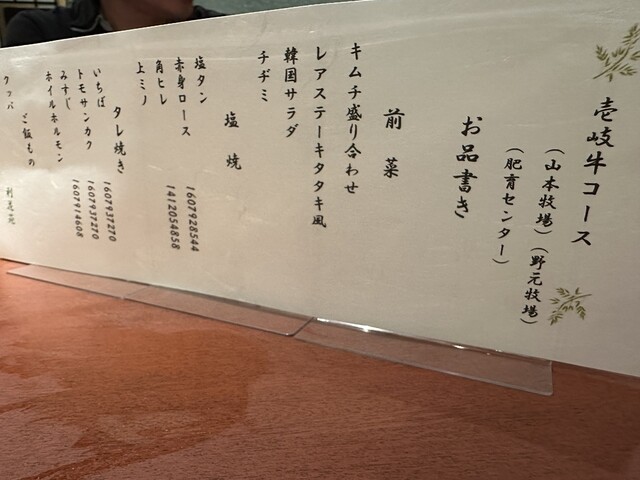 壱岐牛コース
(山本牧場)(野元牧場)
(肥育センター)
お品書き
前菜
キムチ盛り合わせ
レアステーキタタキ風
韓国サラダ
チヂミ
塩焼
塩タン
赤身ロース 1607928544
角ヒレ 1412054858
上ミノ
タレ焼き
いちぼ 1607937270
トモサンカク 1607937270
みすじ 1607914608
ホイルホルモン
クッパ ご飯もの